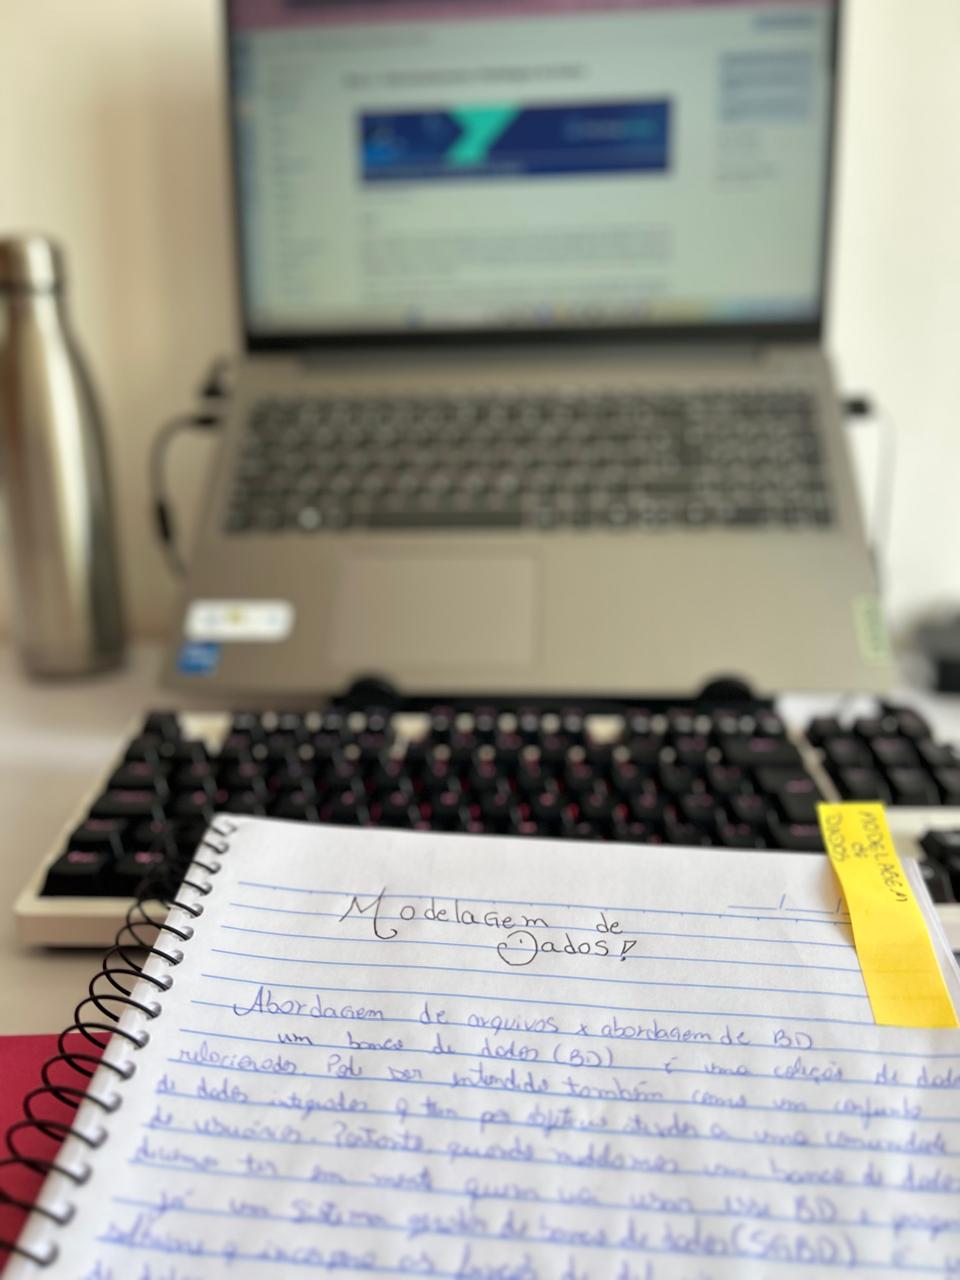 MODELAGEM
de
DADOS
Modelagem de
Dados!
Abordagem de arquivos x abordagem de BD
um banco de dados (BD) é uma coleção de dados
relacionados. Pode ser entendido também como um conjunto
de dados integrados q tem por objetivo atender a uma comunidade
de usuários. Portanto, quando modelamos um banco de dados
devemos ter em mente quem vai usar esse BD e
já um sistema gerador de banco de dados (SGBD) é
software q incorpora as funções de